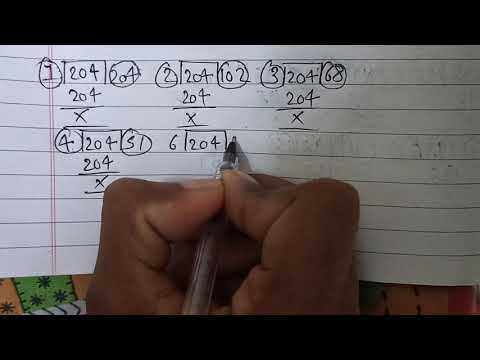 1 204 204 2 204 102 3 204 68
204 204 204
x x x
4 204 51 6 204
204
x